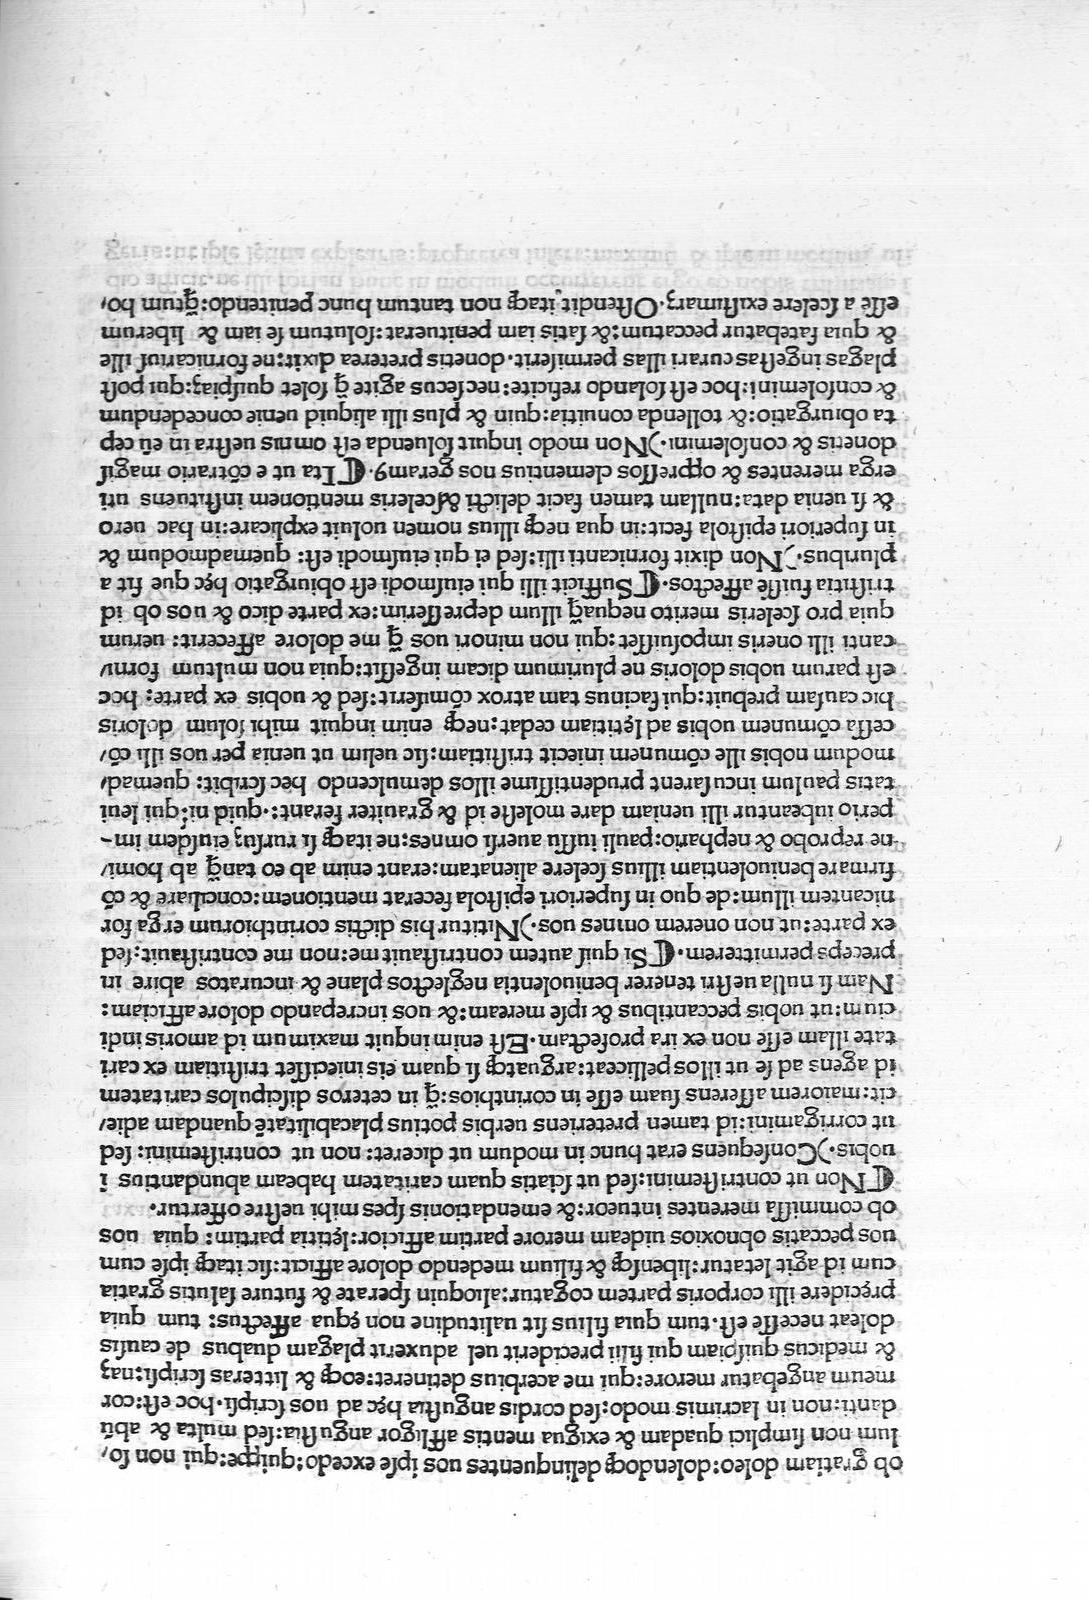 ob gratiam doleo:dolendoq; delinquentes uos ipſe excedo:quippe:qui non ſo,
lum non ſimplici quadam & exigua mentis affligor anguſtia:ſed multa & abū
danti:non in lacrimis modo:ſed cordis anguſtia hęc ad uos ſcripſi.hoc eſt:cor
meum angebatur merore:qui me acerbius detineret:eoq; & litteras ſcripſi:naʒ
& medicus quiſpiam qui filii preciderit uel aduxerit plagam duabus de cauſis
doleat neceſſe eſt.tum quia filius ſit ualitudine non ęqua affectus: tum quia
pręcidere illi corporis partem cōgatur:alioquin ſperate & future ſalutis gratia
cum id agit letatur:libenſq; & filium medendo dolore afficit:ſic itaq; ipſe cum
uos peccatis obnoxios uideam merore partim afficior:lętitia partim: quia uos
ob commiſſa merentes intueor:& emendationis ſpes mihi ueſtre offertur.
⸿Non ut contriſtemini:ſed ut ſciatis quam caritatem habeam abundantius ī
uobis.)Conſequens erat hunc in modum ut diceret: non ut contriſtemini: ſed
ut corrigamini:id tamen preteriens uerbis potius placabilitatē quandam adie,
cit: maiorem aſſerens ſuam eſſe in corinthios:q̄ in ceteros diſcipulos caritatem
id agens ad ſe ut illos pelliceat:arguatq; ſi quam eis inieciſſet triſtitiam ex cari
tate illam eſſe non ex ira profectam.Eſt enim inquit maximum id amoris indi
cium:ut uobis peccantibus & ipſe meream:& uos increpando dolore afficiam:
Nam ſi nulla ueſtri tenerer beniuolentia neglectos plane & incuratos abire in
preceps permitterem.⸿Si quiſ autem contriſtauit me:non me contriſtauit:ſed
ex parte:ut non onerem omnes uos.)Nititur his dictis corinthiorum erga for
nicantem illum:de quo in ſuperiori epiſtola fecerat mentionem:conciliare & cō
firmare beniuolentiam illius ſcelere alienatam:erant enim ab eo tanq̄ ab homi,
ne reprobo & nephario:pauli iuſſu auerſi omnes:ne itaq; ſi rurſuʒ eiuſdem im-
perio iubeantur illi ueniam dare moleſte id & grauiter ferant:.quid ni:qui leui
tatis paulum incuſarent prudentiſſime illos demulcendo hec ſcribit: quemad,
modum nobis ille cōmunem iniecit triſtitiam:ſic uelim ut uenia per uos illi cō,
ceſſa cōmunem uobis ad lętitiam cedat:neq; enim inquit mihi ſolum doloris
hic cauſam prebuit:qui facinus tam atrox cōmiſerit:ſed & uobis ex parte: hoc
eſt parum uobis doloris ne plurimum dicam ingeſſit:quia non multum forni,
canti illi oneris impoſuiſſet:qui non minori uos q̄ me dolore affecerit: uerum
quia pro ſceleris merito nequaq̄ illum depreſſerim:ex parte dico & uos ob id
triſtitia fuiſſe affectos.⸿Sufficit illi qui eiuſmodi eſt obiurgatio hęc que fit a
pluribus.)Non dixit fornicanti illi:ſed ei qui eiuſmodi eſt: quemadmodum &
in ſuperiori epiſtola fecit:in qua neq; illius nomen uoluit explicare:in hac uero
& ſi uenia data:nullam tamen facit delicti &ſceleris mentionem inſtituens uti
erga merentes & oppreſſos clementius nos geramꝰ.⸿Ita ut e cōtrario magiſ
donetis & conſolemini.)Non modo inquit ſoluenda eſt omnis ueſtra in eū cep
ta obiurgatio:& tollenda conuitia:quin & plus illi aliquid uenie concedendum
& conſolemini:hoc eſt ſolando reficite:nec ſecus agite q̄ ſolet quiſpiaʒ:qui poſt
plagas ingeſtas curari illas permiſerit.donetis preterea dixit:ne fornicariuſ ille
& quia fatebatur peccatum:& ſatis iam penituerat:ſolutum ſe iam & liberum
eſſe a ſcelere exiſtimarʒ.Oſtendit itaq; non tantum hunc penitendo:q̄tum bo,